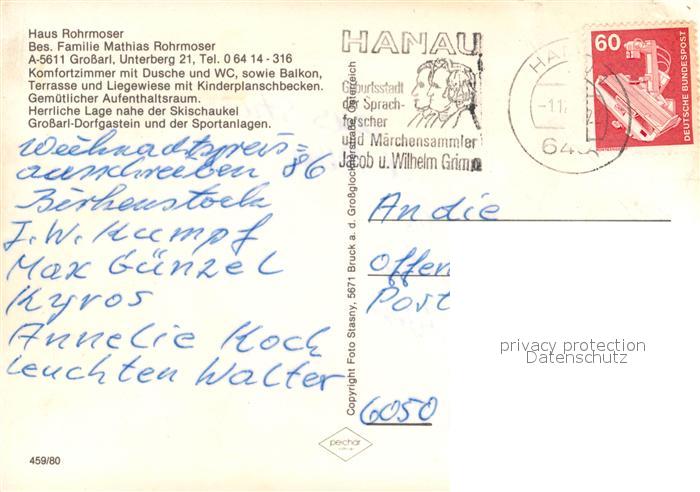 Haus Rohrmoser
Bes. Familie Mathias Rohrmoser
A-5611 Großarl, Unterberg 21, Tel. 0 64 14 - 316
Komfortzimmer mit Dusche und WC, sowie Balkon,
Terrasse und Liegewiese mit Kinderplanschbecken.
Gemütlicher Aufenthaltsraum.
Herrliche Lage nahe der Skischaukel
Großarl-Dorfgastein und der Sportanlagen.
Weihnachtspreis=
ausschreiben 86
Birkenstock
J. W. Kumpf
Max Günzel
Kyros
Annelie Koch
Leuchten Walter
459/80
Copyright Foto Stasny, 5671 Bruck a. d. Großglocknerstraße, Österreich
pechar
HANAU
Geburtsstadt
der Sprach-
forscher
und Märchensammler
Jacob u. Wilhelm Grimm
HAN
-1.1
64
60
DEUTSCHE BUNDESPOST
An die
Offen
Post
6050
privacy protection
Datenschutz